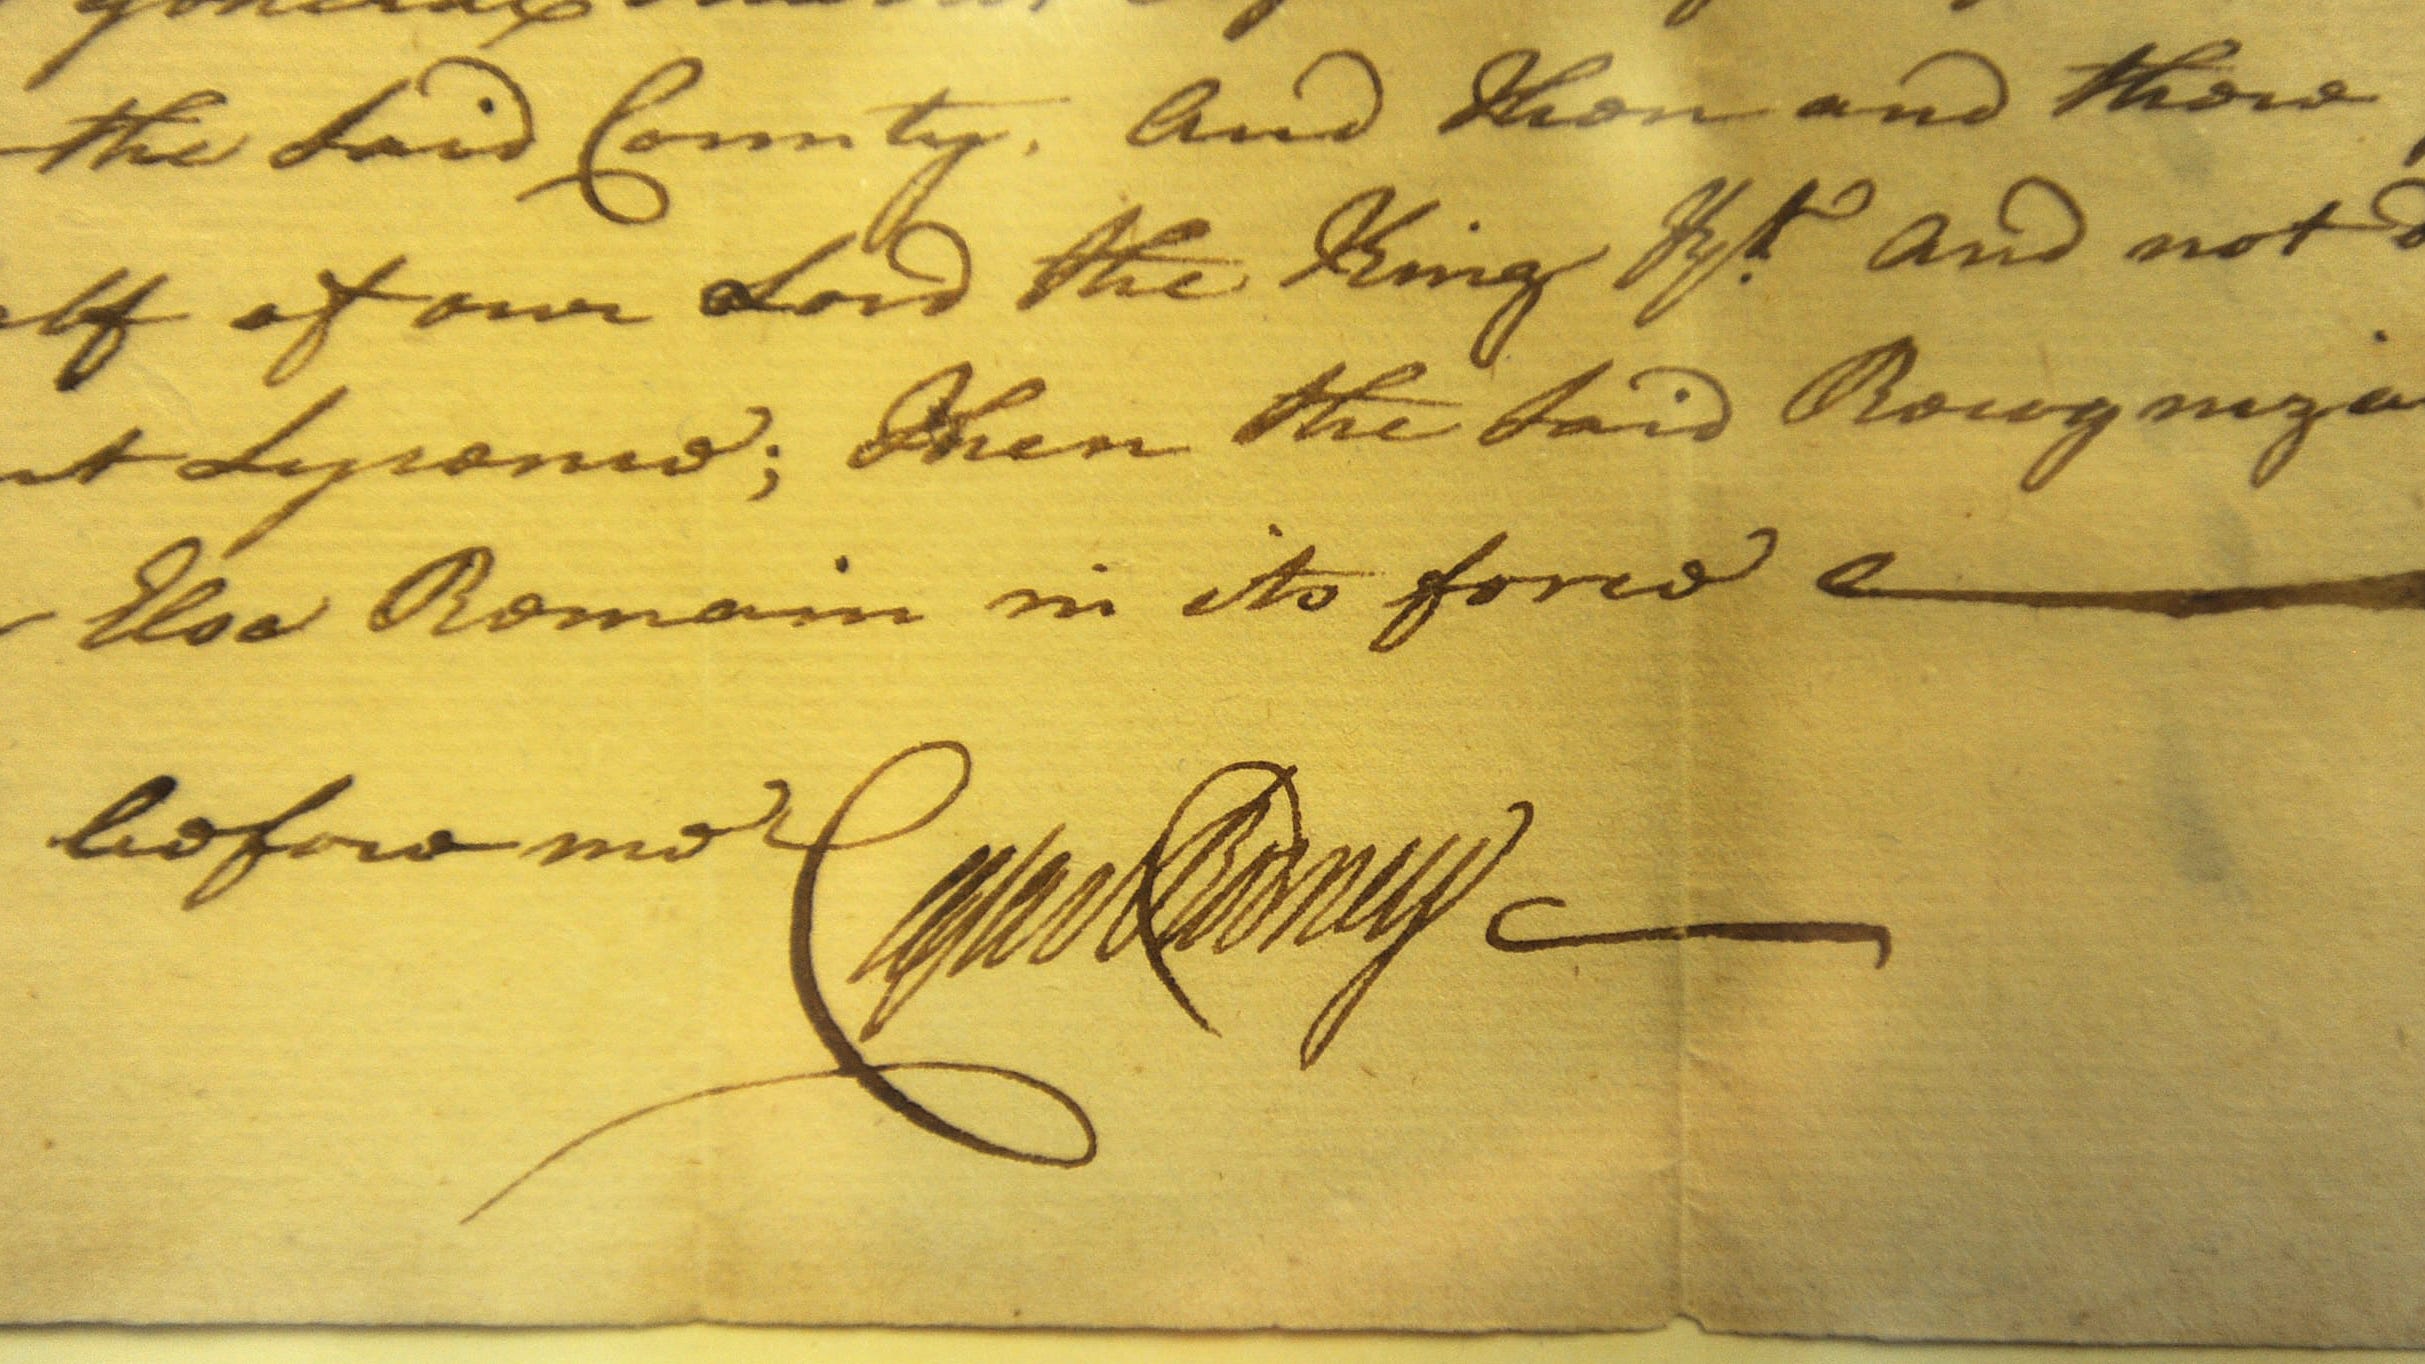 the Said County. And Then and there
of our Lord the King And not
Lycence; Then the Said Recogniza
Else Remain in its force
before me Cæsar Rodney